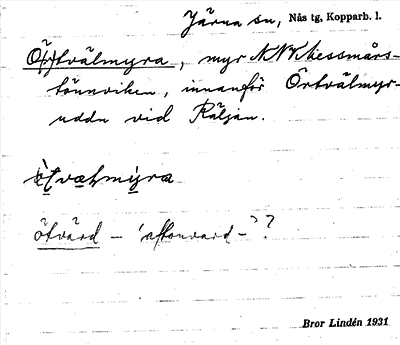 Järna sn, Nås tg, Kopparb. l.
Ö(r)tvälmyra, myr NNV Messmårs-
tännviken, innanför Örtvälmyr-
udda vid Räljan.
ötvård – 'aftonvard-'??
Bror Lindén 1931